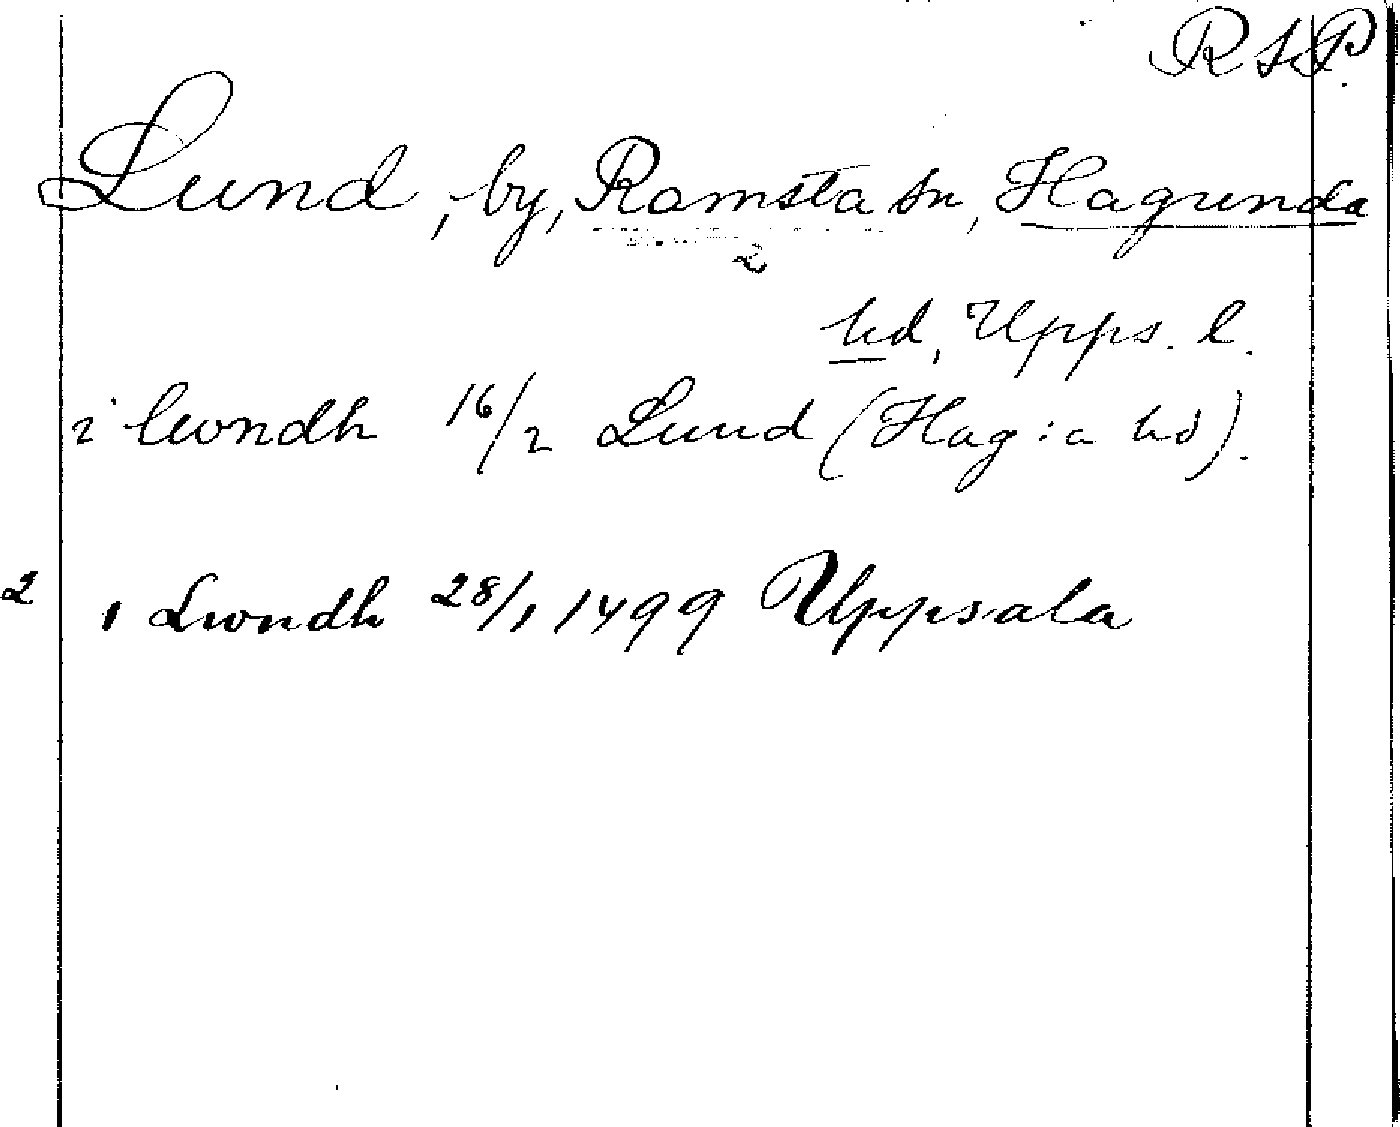 RSP.
Lund, by, Ramsta sn, Hagunda
2
hd, Upps. l.
i lwndh 16/2 Lund (Hag:a hd).
2 i Lwndh 28/1 1499 Uppsala